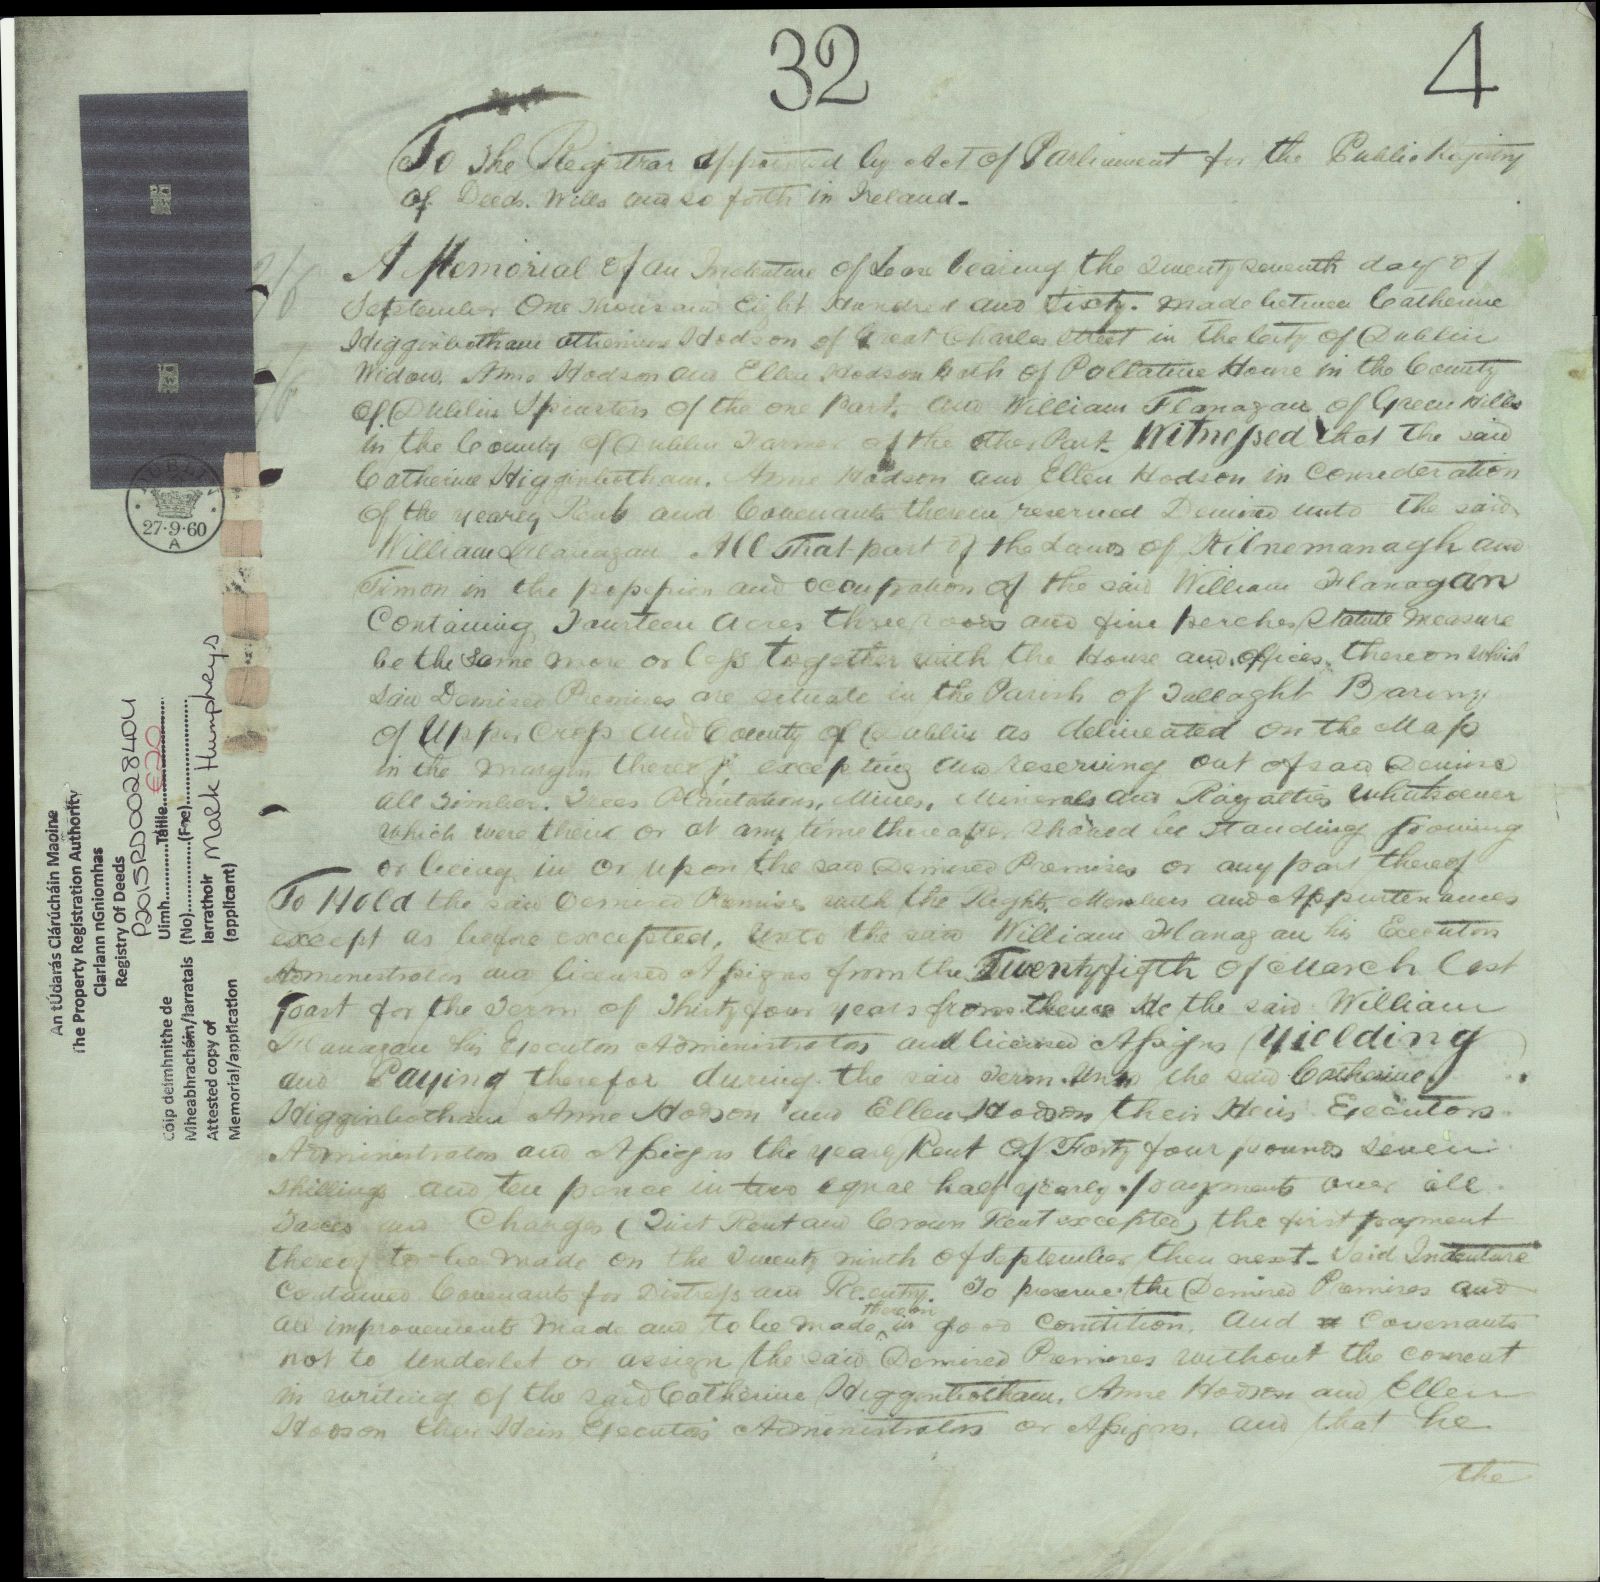 32
4
To The Registrar appointed by Act of Parliament for the Public Registry
of Deeds. Wills and so forth in Ireland-
A Memorial of an Indenture of Lease bearing the Twenty seventh day of
September One Thousand Eight Hundred and Sixty. Made between Catherine
Higginbotham otherwise Hodson of Great Charles Street in the City of Dublin
Widow. Anne Hodson and Ellen Hodson both of House in the County
of Dublin Spinsters of the one Part. And William Flanagan of Green Hills
in the County of Dublin Farmer of the other Part. Witnessed that the said
Catherine Higginbotham. Anne Hodson and Ellen Hodson in Consideration
of the yearly Rent and Covenants therein reserved Demised unto the said
William Flanagan All That part of the Lands of Kilnemanagh and
Timon in the possession and occupation of the said William Flanagan
Containing Fourteen Acres three roods and five perches Statute Measure
be the same more or less together with the House and offices thereon which
said Demised Premises are situate in the Parish of Tallaght Barony
of Upper Cross and County of Dublin as delineated on the Map
in the margin thereof, excepting and reserving out of said Demise
all Timber. Trees Plantations, Mines, Minerals and Royalties Whatsoever
which were then or at any time thereafter should be standing growing
or being in or upon the said Demised Premises or any part thereof
To Hold the said Demised Premises with the Rights, Members and Appurtenances
except as before excepted, Unto the said William Flanagan his Executors
Administrators and licensed Assigns from the Twentyfifth of March last
past for the Term of Thirty four years from thence He the said William
Flanagan his Executors Administrators and licensed Assigns Yielding
and Paying therefor during the said Term Unto the said Catherine
Higginbotham Anne Hodson and Ellen Hodson their Heirs Executors
Administrators and Assigns the yearly Rent of Forty four pounds seven
shillings and ten pence in two equal half yearly payments over all
Taxes and Charges (Quit Rent and Crown Rent excepted) the first payment
thereof to be made on the Twenty ninth of September then next- Said Indenture
contained Covenants for Distress and Re.entry. To preserve the Demised Premises and
all improvements made and to be made thereon in good condition. And Covenants
not to underlet or assign the said Demised Premises without the consent
in writing of the said Catherine Higginbotham, Anne Hodson and Ellen
Hodson their Heirs Executors Administrators or Assigns, and that he
the
DUBLIN
27·9·60
A
An tÚdarás Clárúcháin Maoine
The Property Registration Authority
Clarlann nGniomhas
Registry Of Deeds
P2015RD0028404U
Cóip deimhnithe de Uimh..........Táille €20
Mheabhracháin/Iarratais (No)..........(Fee)..........
Attested copy of Iarrathoir Mark Humphreys
Memorial/application (applicant)